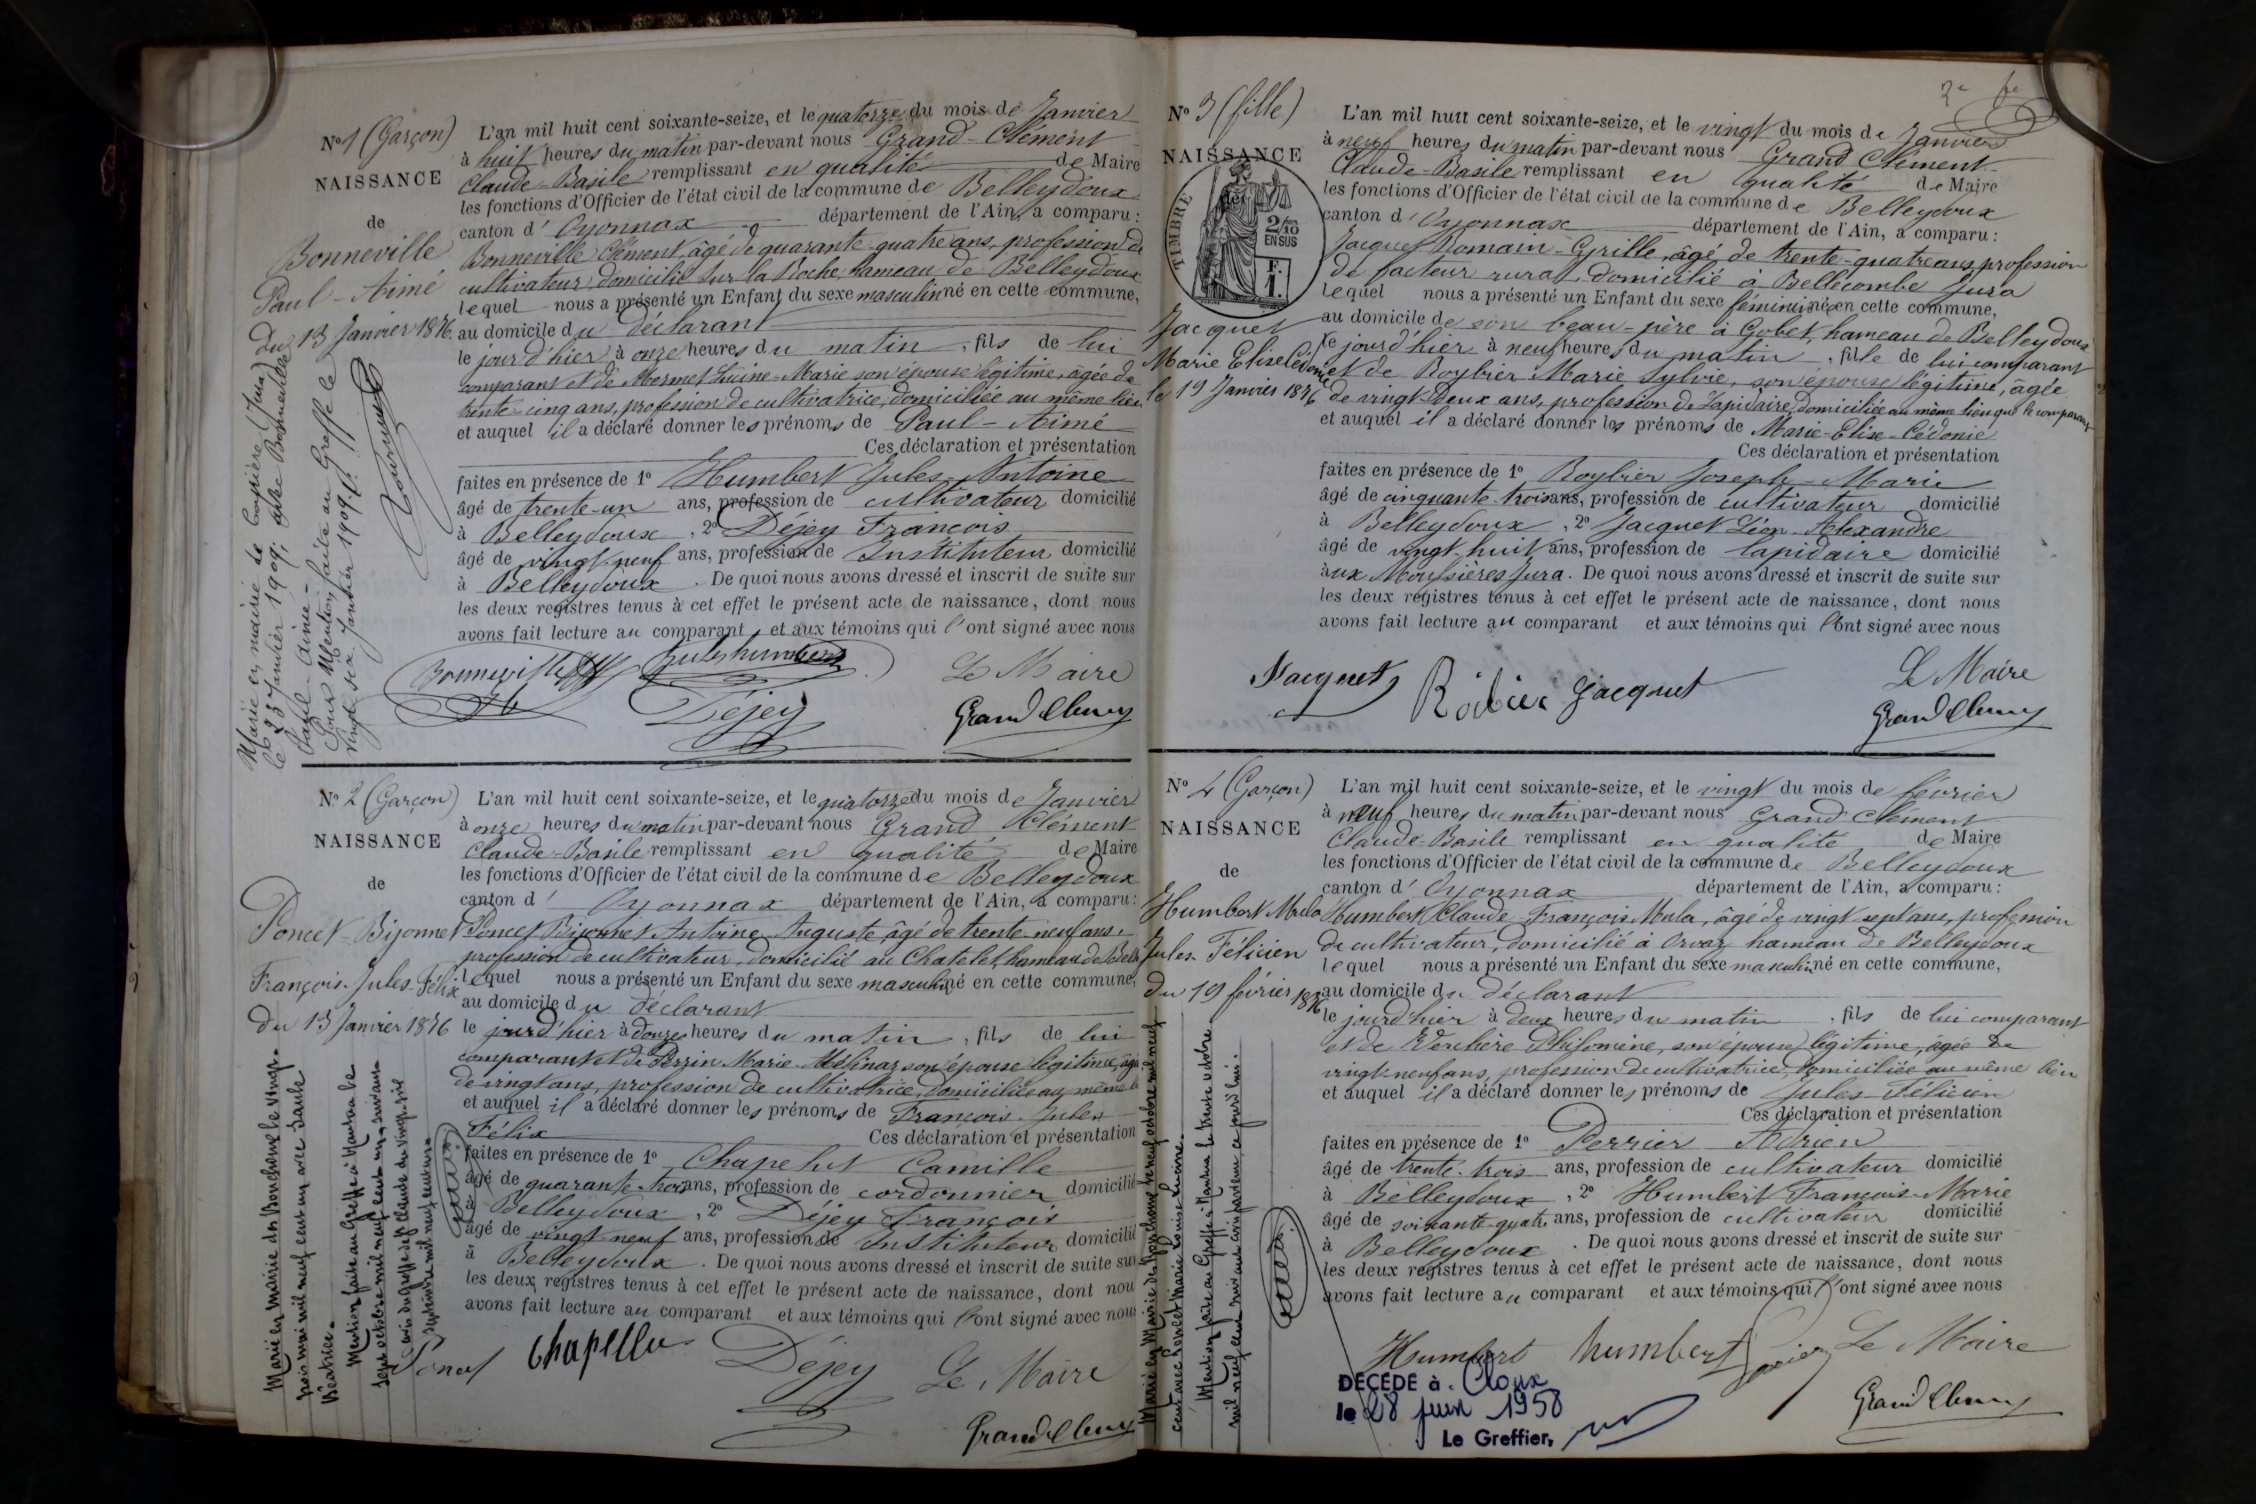 N° 1 (Garçon)
NAISSANCE
de
Bonneville
Paul-Aimé
du 13 Janvier 1876
L'an mil huit cent soixante-seize, et le quatorze du mois de Janvier
à huit heures du matin par-devant nous Grand-Clément
Claude-Basile remplissant en qualité de Maire
les fonctions d'Officier de l'état civil de la commune de Belleydoux
canton d'Oyonnax département de l'Ain, a comparu :
Bonneville Clément, âgé de quarante-quatre ans, profession de
cultivateur, domicilié sur la Roche, hameau de Belleydoux
lequel nous a présenté un Enfant du sexe masculin né en cette commune,
au domicile du déclarant
le jour d'hier à onze heures du matin, fils de lui
comparant et de Mermet Marie son épouse légitime, âgée de
trente-cinq ans, profession de cultivatrice, domiciliée au même lieu
et auquel il a déclaré donner les prénoms de Paul-Aimé
Ces déclaration et présentation
faites en présence de 1° Humbert Jules Antoine
âgé de trente-un ans, profession de cultivateur domicilié
à Belleydoux, 2° Déjey François
âgé de vingt-neuf ans, profession de Instituteur domicilié
à Belleydoux. De quoi nous avons dressé et inscrit de suite sur
les deux registres tenus à cet effet le présent acte de naissance, dont nous
avons fait lecture au comparant et aux témoins qui l'ont signé avec nous
Bonneville Jules humbert Le Maire
Déjey Grand Clément
Marié en mairie de (Jura)
le 23 Janvier 1909, Bonneville
Pour Mention faite au Greffe le
vingt six Janvier 1909.
N° 2 (Garçon)
NAISSANCE
de
Poncet-Bijonnet
François-Jules-Félix
du 13 Janvier 1876
L'an mil huit cent soixante-seize, et le quatorze du mois de Janvier
à onze heures du matin par-devant nous Grand Clément
Claude-Basile remplissant en qualité de Maire
les fonctions d'Officier de l'état civil de la commune de Belleydoux
canton d'Oyonnax département de l'Ain, a comparu :
Poncet Bijonnet Antoine Auguste, âgé de trente-neuf ans
profession de cultivateur, domicilié au Chatelet, hameau de Bell
lequel nous a présenté un Enfant du sexe masculin né en cette commune,
au domicile du déclarant
le jourd'hier à douze heures du matin, fils de lui
comparant et de Perrin Marie son épouse légitime, âgée
de vingt ans, profession de cultivatrice, domiciliée au même
et auquel il a déclaré donner les prénoms de François-Jules
Félix Ces déclaration et présentation
faites en présence de 1° Chapelut Camille
âgé de quarante-trois ans, profession de cordonnier domicilié
à Belleydoux, 2° Déjey François
âgé de vingt-neuf ans, profession de Instituteur domicilié
à Belleydoux. De quoi nous avons dressé et inscrit de suite sur
les deux registres tenus à cet effet le présent acte de naissance, dont nou
avons fait lecture au comparant et aux témoins qui l'ont signé avec nous
Poncet Chapellu Déjey Le Maire
Grand Clément
Marié en mairie des Bouchoux le vingt
trois mai mil neuf cent un avec
Béatrice.
Mention faite au Greffe à Nantua le
sept octobre mil neuf cent un, suivant
avis du greffe de St Claude du vingt-six
septembre mil neuf cent un.
N° 3 (fille)
NAISSANCE
de
TIMBRE
2/10
EN SUS
F.
1.
Jacquet
Marie Elise Cédonie
le 19 Janvier 1876
L'an mil huit cent soixante-seize, et le vingt du mois de Janvier
à neuf heures du matin par-devant nous Grand Clément
Claude-Basile remplissant en qualité de Maire
les fonctions d'Officier de l'état civil de la commune de Belleydoux
canton d'Oyonnax département de l'Ain, a comparu :
Jacquet Romain-Grille, âgé de trente-quatre ans, profession
de facteur rural, domicilié à Bellecombe Jura
lequel nous a présenté un Enfant du sexe féminin né en cette commune,
au domicile de son beau-père à Gobet, hameau de Belleydoux
le jourd'hier à neuf heures du matin, fille de lui comparant
et de Roybier Marie Sylvie, son épouse légitime, âgée
de vingt-deux ans, profession de Lapidaire, domiciliée au même lieu que le comparant
et auquel il a déclaré donner les prénoms de Marie-Elise-Cédonie
Ces déclaration et présentation
faites en présence de 1° Roybier Joseph-Marie
âgé de cinquante-trois ans, profession de cultivateur domicilié
à Belleydoux, 2° Jacquet Léon-Alexandre
âgé de vingt-huit ans, profession de lapidaire domicilié
aux Moussières Jura. De quoi nous avons dressé et inscrit de suite sur
les deux registres tenus à cet effet le présent acte de naissance, dont nous
avons fait lecture au comparant et aux témoins qui l'ont signé avec nous
Jacquet Roibier Jacquet Le Maire
Grand Clément
N° 4 (Garçon)
NAISSANCE
de
Humbert Mula
Jules Félicien
du 19 février 1876
L'an mil huit cent soixante-seize, et le vingt du mois de février
à neuf heures du matin par-devant nous Grand Clément
Claude-Basile remplissant en qualité de Maire
les fonctions d'Officier de l'état civil de la commune de Belleydoux
canton d'Oyonnax département de l'Ain, a comparu :
Humbert Claude-François Mula, âgé de vingt sept ans, profession
de cultivateur, domicilié à Orvaz hameau de Belleydoux
lequel nous a présenté un Enfant du sexe masculin né en cette commune,
au domicile du déclarant
le jourd'hier à deux heures du matin, fils de lui comparant
et de Verchère Philomène, son épouse légitime, âgée de
vingt-neuf ans, profession de cultivatrice, domiciliée au même lieu
et auquel il a déclaré donner les prénoms de Jules-Félicien
Ces déclaration et présentation
faites en présence de 1° Perrier Adrien
âgé de trente-trois ans, profession de cultivateur domicilié
à Belleydoux, 2° Humbert François-Marie
âgé de soixante-quatre ans, profession de cultivateur domicilié
à Belleydoux. De quoi nous avons dressé et inscrit de suite sur
les deux registres tenus à cet effet le présent acte de naissance, dont nous
avons fait lecture au comparant et aux témoins qui l'ont signé avec nous
Humbert humbert Perrier Le Maire
Grand Clément
DÉCÉDÉ à Cloux
le 28 juin 1958
Le Greffier,
Marié en Mairie des Bouchoux le neuf octobre mil neuf
cent avec Poncet Marie Louise
Mention faite au Greffe à Nantua le trente octobre
mil neuf cent suivant avis parvenu ce jourd'hui.